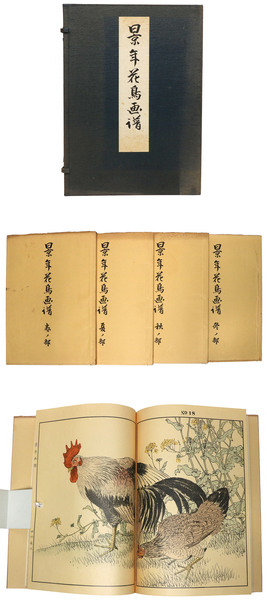 景年花鳥画譜
景年花鳥画譜 春ノ部
景年花鳥画譜 夏ノ部
景年花鳥画譜 秋ノ部
景年花鳥画譜 冬ノ部
No 18